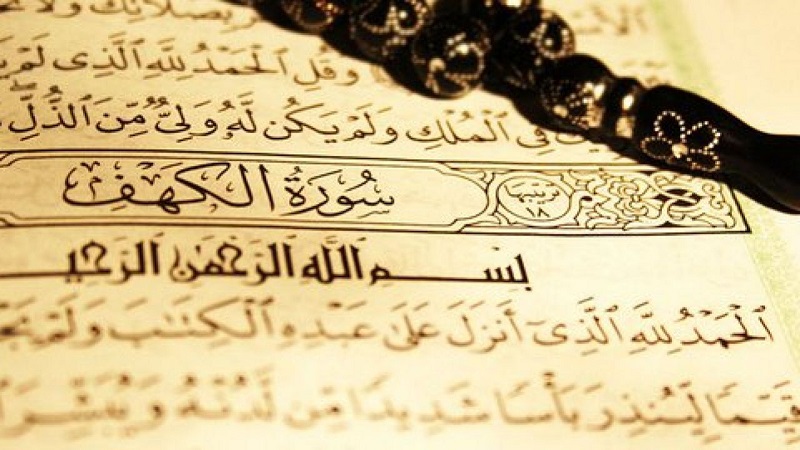 بِصَلَاتِكَ وَلَا
وَقُلِ ٱلْحَمْدُ لِلَّهِ ٱلَّذِى لَمْ
فِى ٱلْمُلْكِ وَلَمْ يَكُن لَّهُۥ وَلِىٌّ مِّنَ ٱلذُّلِّ
ترتيبها ١٨ سُورَةُ الكَهْفِ
بسم الله الرحمن الرحيـ
ٱلْحَمْدُ لِلَّهِ ٱلَّذِىٓ أَنزَلَ عَلَىٰ عَبْدِهِ ٱلْكِتَـٰبَ وَلَمْ
قَيِّمًا لِّيُنذِرَ بَأْسًا شَدِيدًا مِّن لَّدُنْهُ وَيُبَشِّرَ